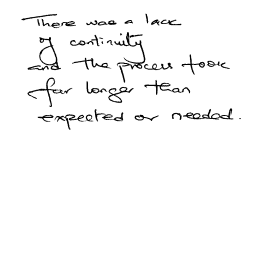 There was a lack
of continuity
and the process took
far longer than
expected or needed.